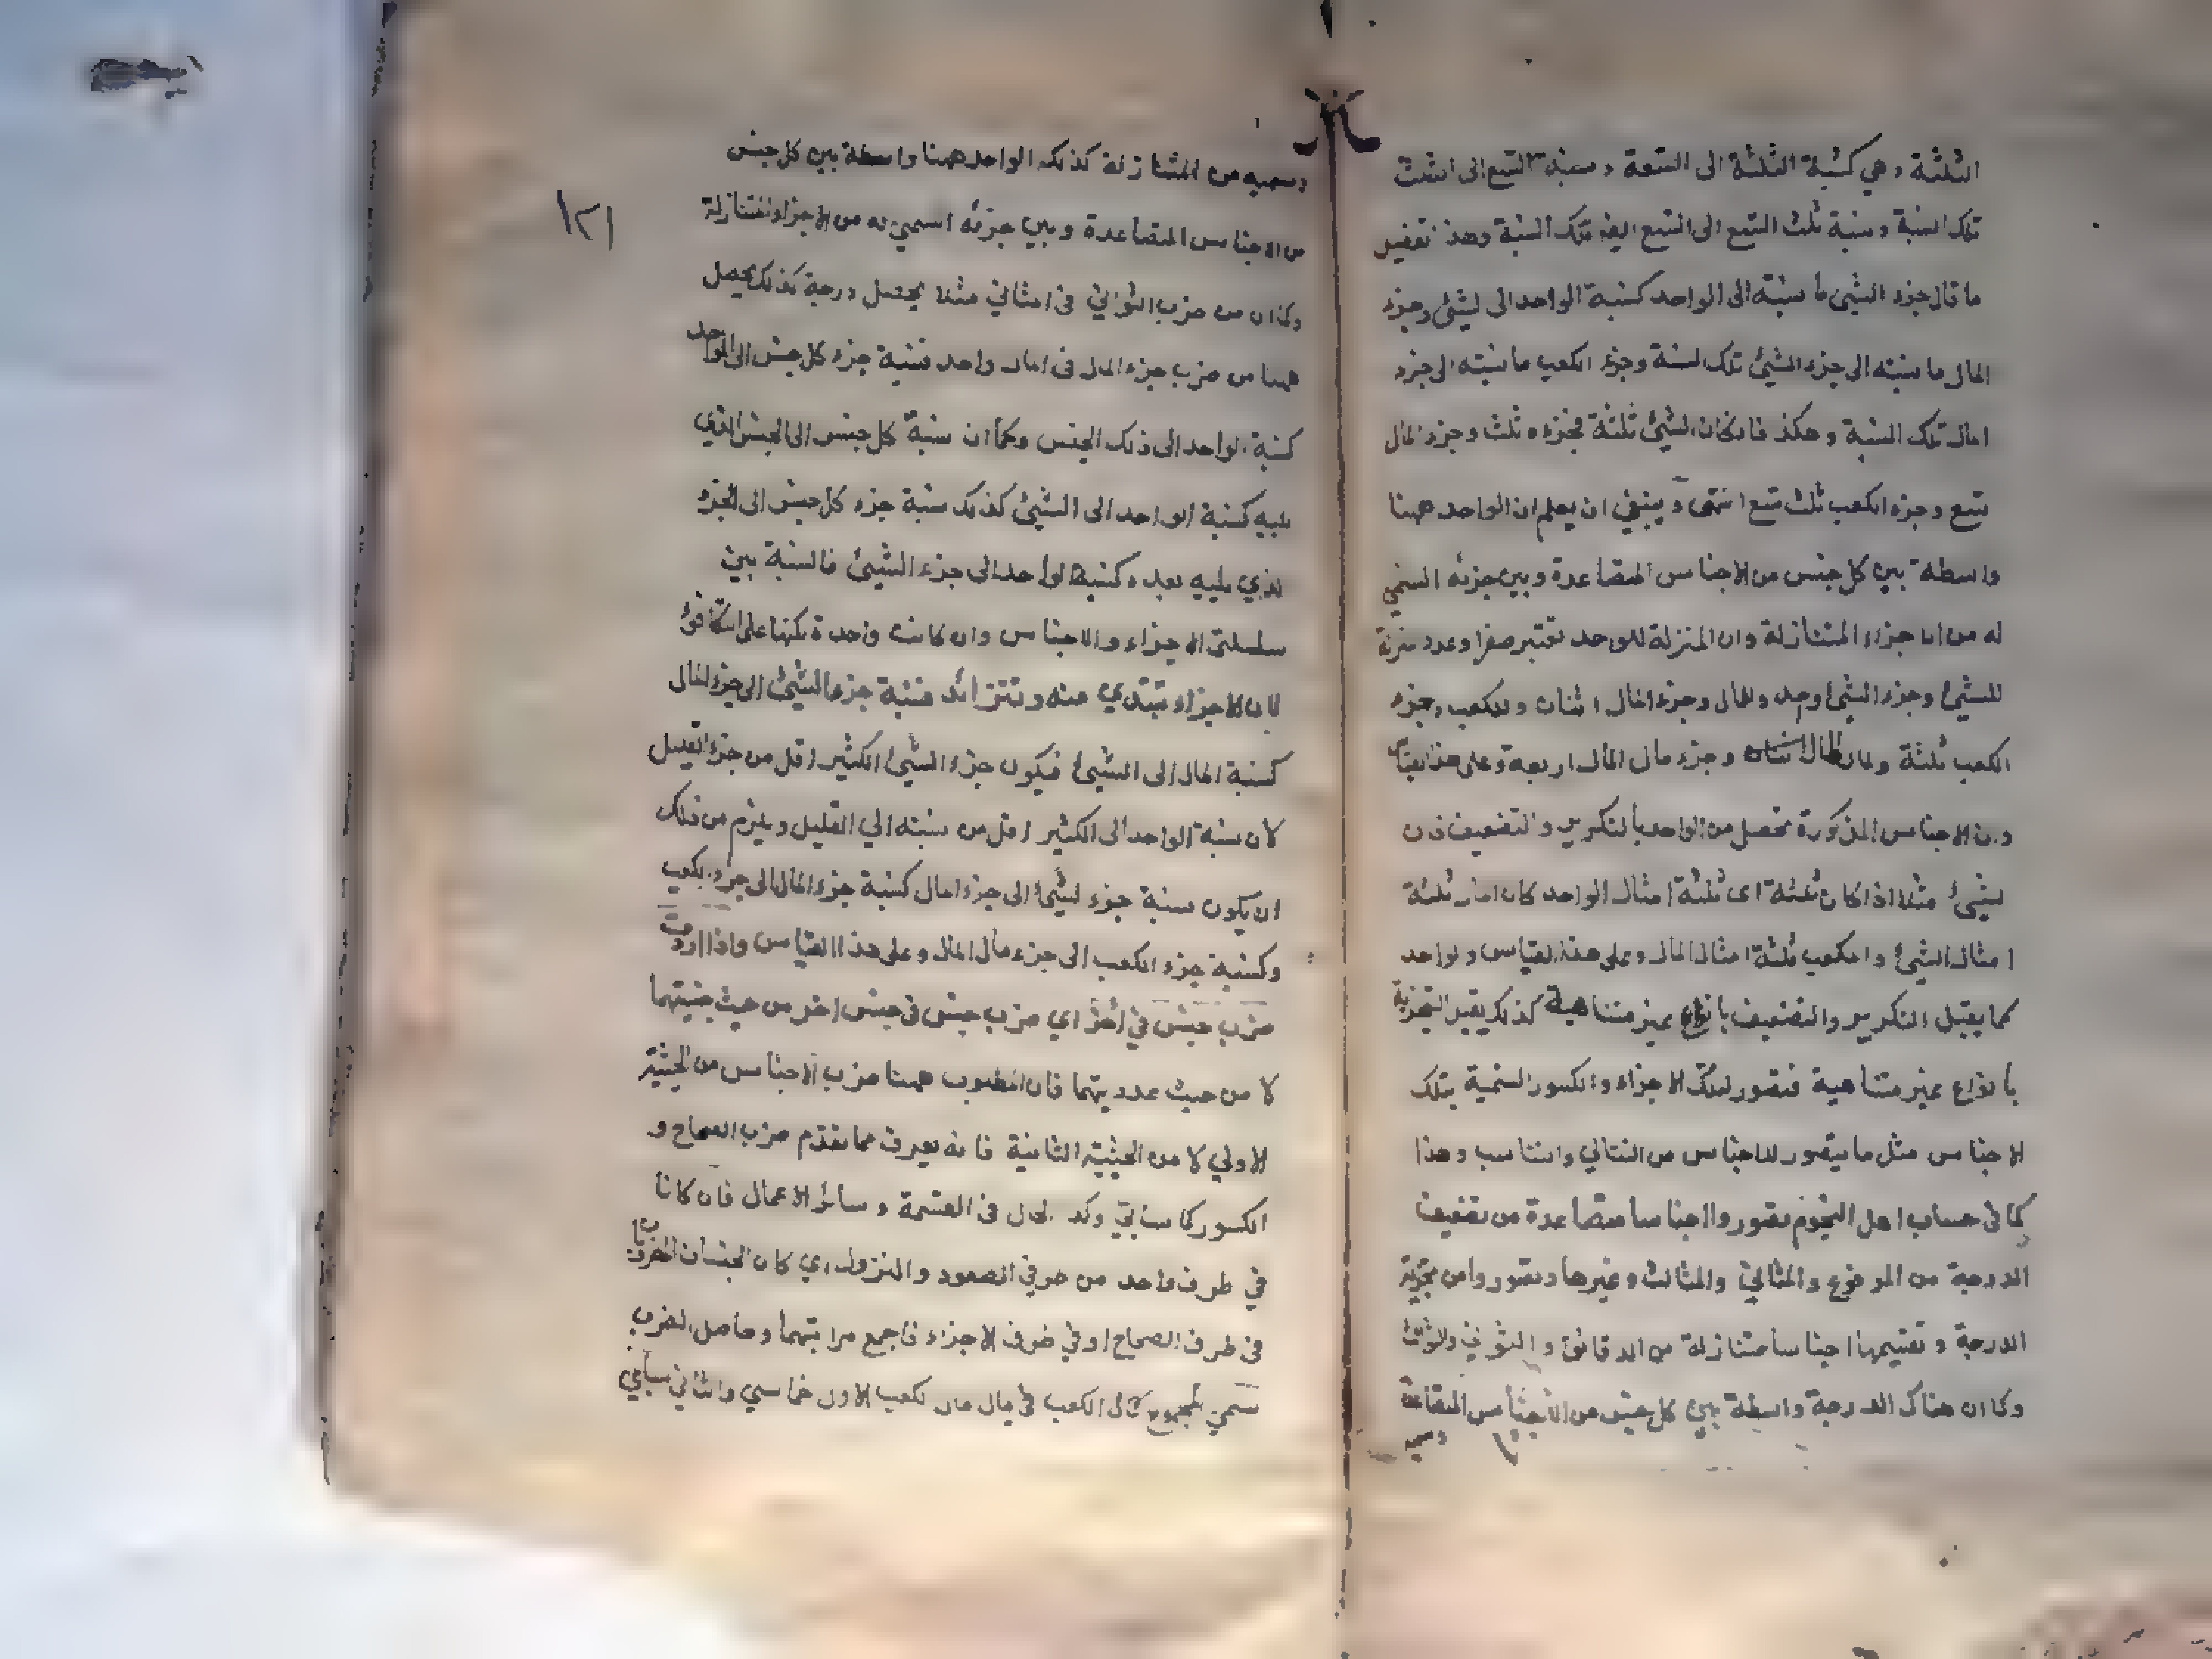 الثلثة وهي كنسبة الثلثة الى التسعة ونسبة التسع الى الثلث
تلك النسبة ونسبة ثلث التسع الى التسع ايضا تلك النسبة وهذا تفصيل
ما قال جزء الشيئ ما نسبته الى الواحد كنسبة الواحد الى لشيئ وجزء
المال ما نسبته الى جزء الشيئ تلك النسبة وجزء الكعب ما نسبته الى جزء
المال تلك النسبة وهكذا فان كان الشيئ ثلثة فجزءه ثلث وجزء المال
تسع وجزء الكعب ثلث تسع انتهى وينبغي ان يعلم ان الواحد ههنا
واسطة بين كل جنس من الاجناس المتصاعدة وبين جزئه السمي
له من الاجزاء المتنازلة وان المنزلة للواحد تعتبر صفرا وعدد منزلة
للشيئ وجزء الشيئ واحد وللمال وجزء المال اثنان وللكعب وجزء
الكعب ثلثة ولمال المال وجزء مال المال اربعة وعلى هذا القياس
وان الاجناس المذكورة تحصل من الواحد بالتكرير والتضعيف فان
لشيئ مثلا اذا كان ثلثة اى ثلثة امثال الواحد كان المال ثلثة
امثال الشيئ والمكعب ثلثة امثال المال وعلى هذا القياس والواحد
كما يقبل التكرير والتضعيف بانواع غير متناهية كذلك يقبل التجزية
بانواع غير متناهية فتصور لتلك الاجزاء والكسور السمية بتلك
الاجناس مثل ما يتصور للاجناس من التتالي والتناسب وهذا
كما فى حساب اهل النجوم تصوروا اجناسا متصاعدة من تضعيف
الدرجة من المرفوع والمثاني والمثالث وغيرها وتصوروا من تجزية
الدرجة وتقسيمها اجناسا متنازلة من الدقائق والثواني والثوالث
وكما ان هناك الدرجة واسطة بين كل جنس من الاجناس المتصاعدة
وسمي
١٢١
وسميه من المتنازلة كذلك الواحد ههنا واسطة بين كل جنس
من الاجناس المتصاعدة وبين جزئه السمي له من الاجزاء المتنازلة
وكما ان من ضرب الثواني فى المثاني مثلا يحصل درجة كذلك يحصل
ههنا من ضرب جزء المال فى المال واحد فنسبة جزء كل جنس الى الواحد
كنسبة الواحد الى ذلك الجنس وكما ان نسبة كل جنس الى الجنس الذي
يليه كنسبة الواحد الى الشيئ كذلك نسبة جزء كل جنس الى الجزء
الذي يليه بعده كنسبة الواحد الى جزء الشيئ فالنسبة بين
سلسلتى الاجزاء والاجناس وان كانت واحدة لكنها على التكافؤ
لان الاجزاء تبتدي منه وتتزائد فنسبة جزء الشيئ الى جزء المال
كنسبة المال الى الشيئ فيكون جزء الشيئ الكثير اقل من جزء القليل
لان نسبة الواحد الى الكثير اقل من نسبته الي القليل ويلزم من ذلك
ان يكون نسبة جزء لشيئ الى جزء المال كنسبة جزء المال الى جزء لكعب
وكنسبة جزء الكعب الى جزء مال المال وعلى هذا القياس واذا اردت
ضرب جنس في اخر اي ضرب جنس فى جنس اخر من حيث جنسيتهما
لا من حيث عدديتهما فان المطلوب ههنا ضرب الاجناس من الحيثية
الاولي لا من الحيثية الثانية فانه يعرف مما تقدم ضرب الصحاح و
الكسور كما سبق وكذا لحال فى القسمة وسائر الاعمال فان كانا
في طرف واحد من طرفي الصعود والنزول اي كان الجنسان المضروبان
فى طرف الصحاح او في طرف الاجزاء فاجمع مراتبهما وحاصل الضرب
سمي المجموع كمال الكعب في مال مال لكعب الاول خماسي والثاني سباعي